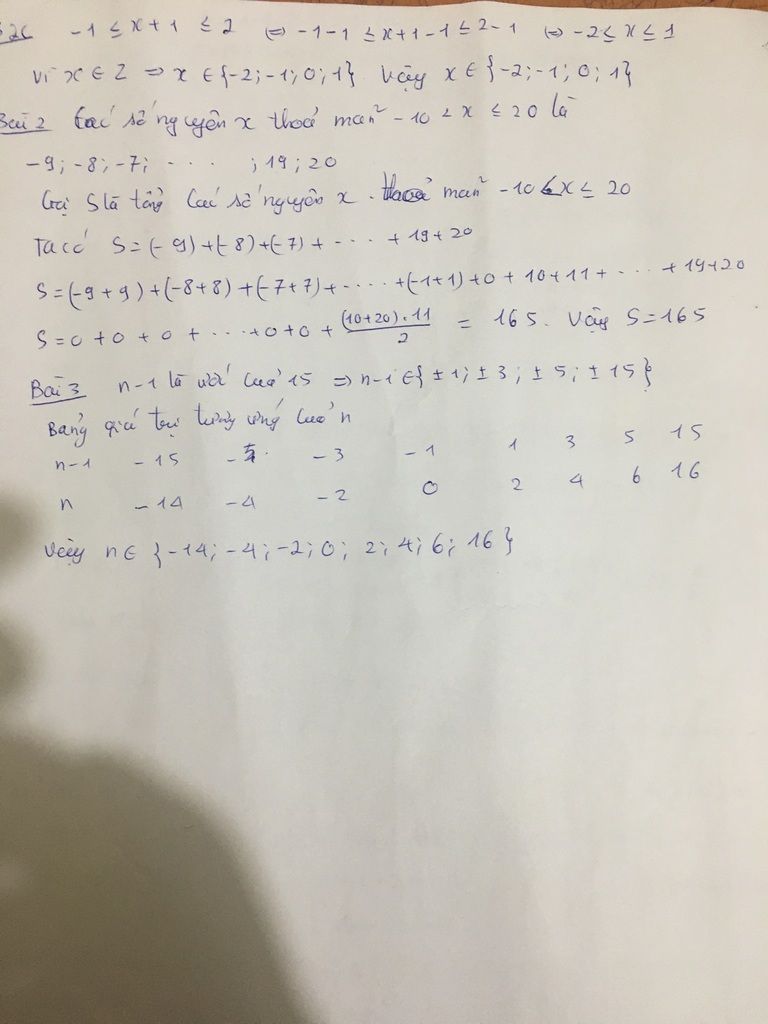 -1 ≤ x + 1 ≤ 2 ⇔ -1-1 ≤ x+1-1 ≤ 2-1 ⇔ -2 ≤ x ≤ 1
Vì x ∈ Z ⇒ x ∈ {-2; -1; 0; 1} Vậy x ∈ {-2; -1; 0; 1}
Bài 2 Các số nguyên x thoả mãn -10 < x ≤ 20 là
-9; -8; -7; . . . . ; 19; 20
Gọi S là tổng các số nguyên x thoả mãn -10 < x ≤ 20
Ta có S = (-9) + (-8) + (-7) + . . . . + 19 + 20
S = (-9 + 9) + (-8+8) + (-7+7) + . . . . + (-1+1) + 0 + 10 + 11 + . . . . + 19 + 20
S = 0 + 0 + 0 + . . . + 0 + 0 + (10+20).11/2 = 165. Vậy S = 165
Bài 3 n-1 là ước của 15 ⇒ n-1 ∈ {±1; ±3; ±5; ±15}
Bảng giá trị tương ứng của n
n-1 -15 -5 -3 -1 1 3 5 15
n -14 -4 -2 0 2 4 6 16
Vậy n ∈ {-14; -4; -2; 0; 2; 4; 6; 16}